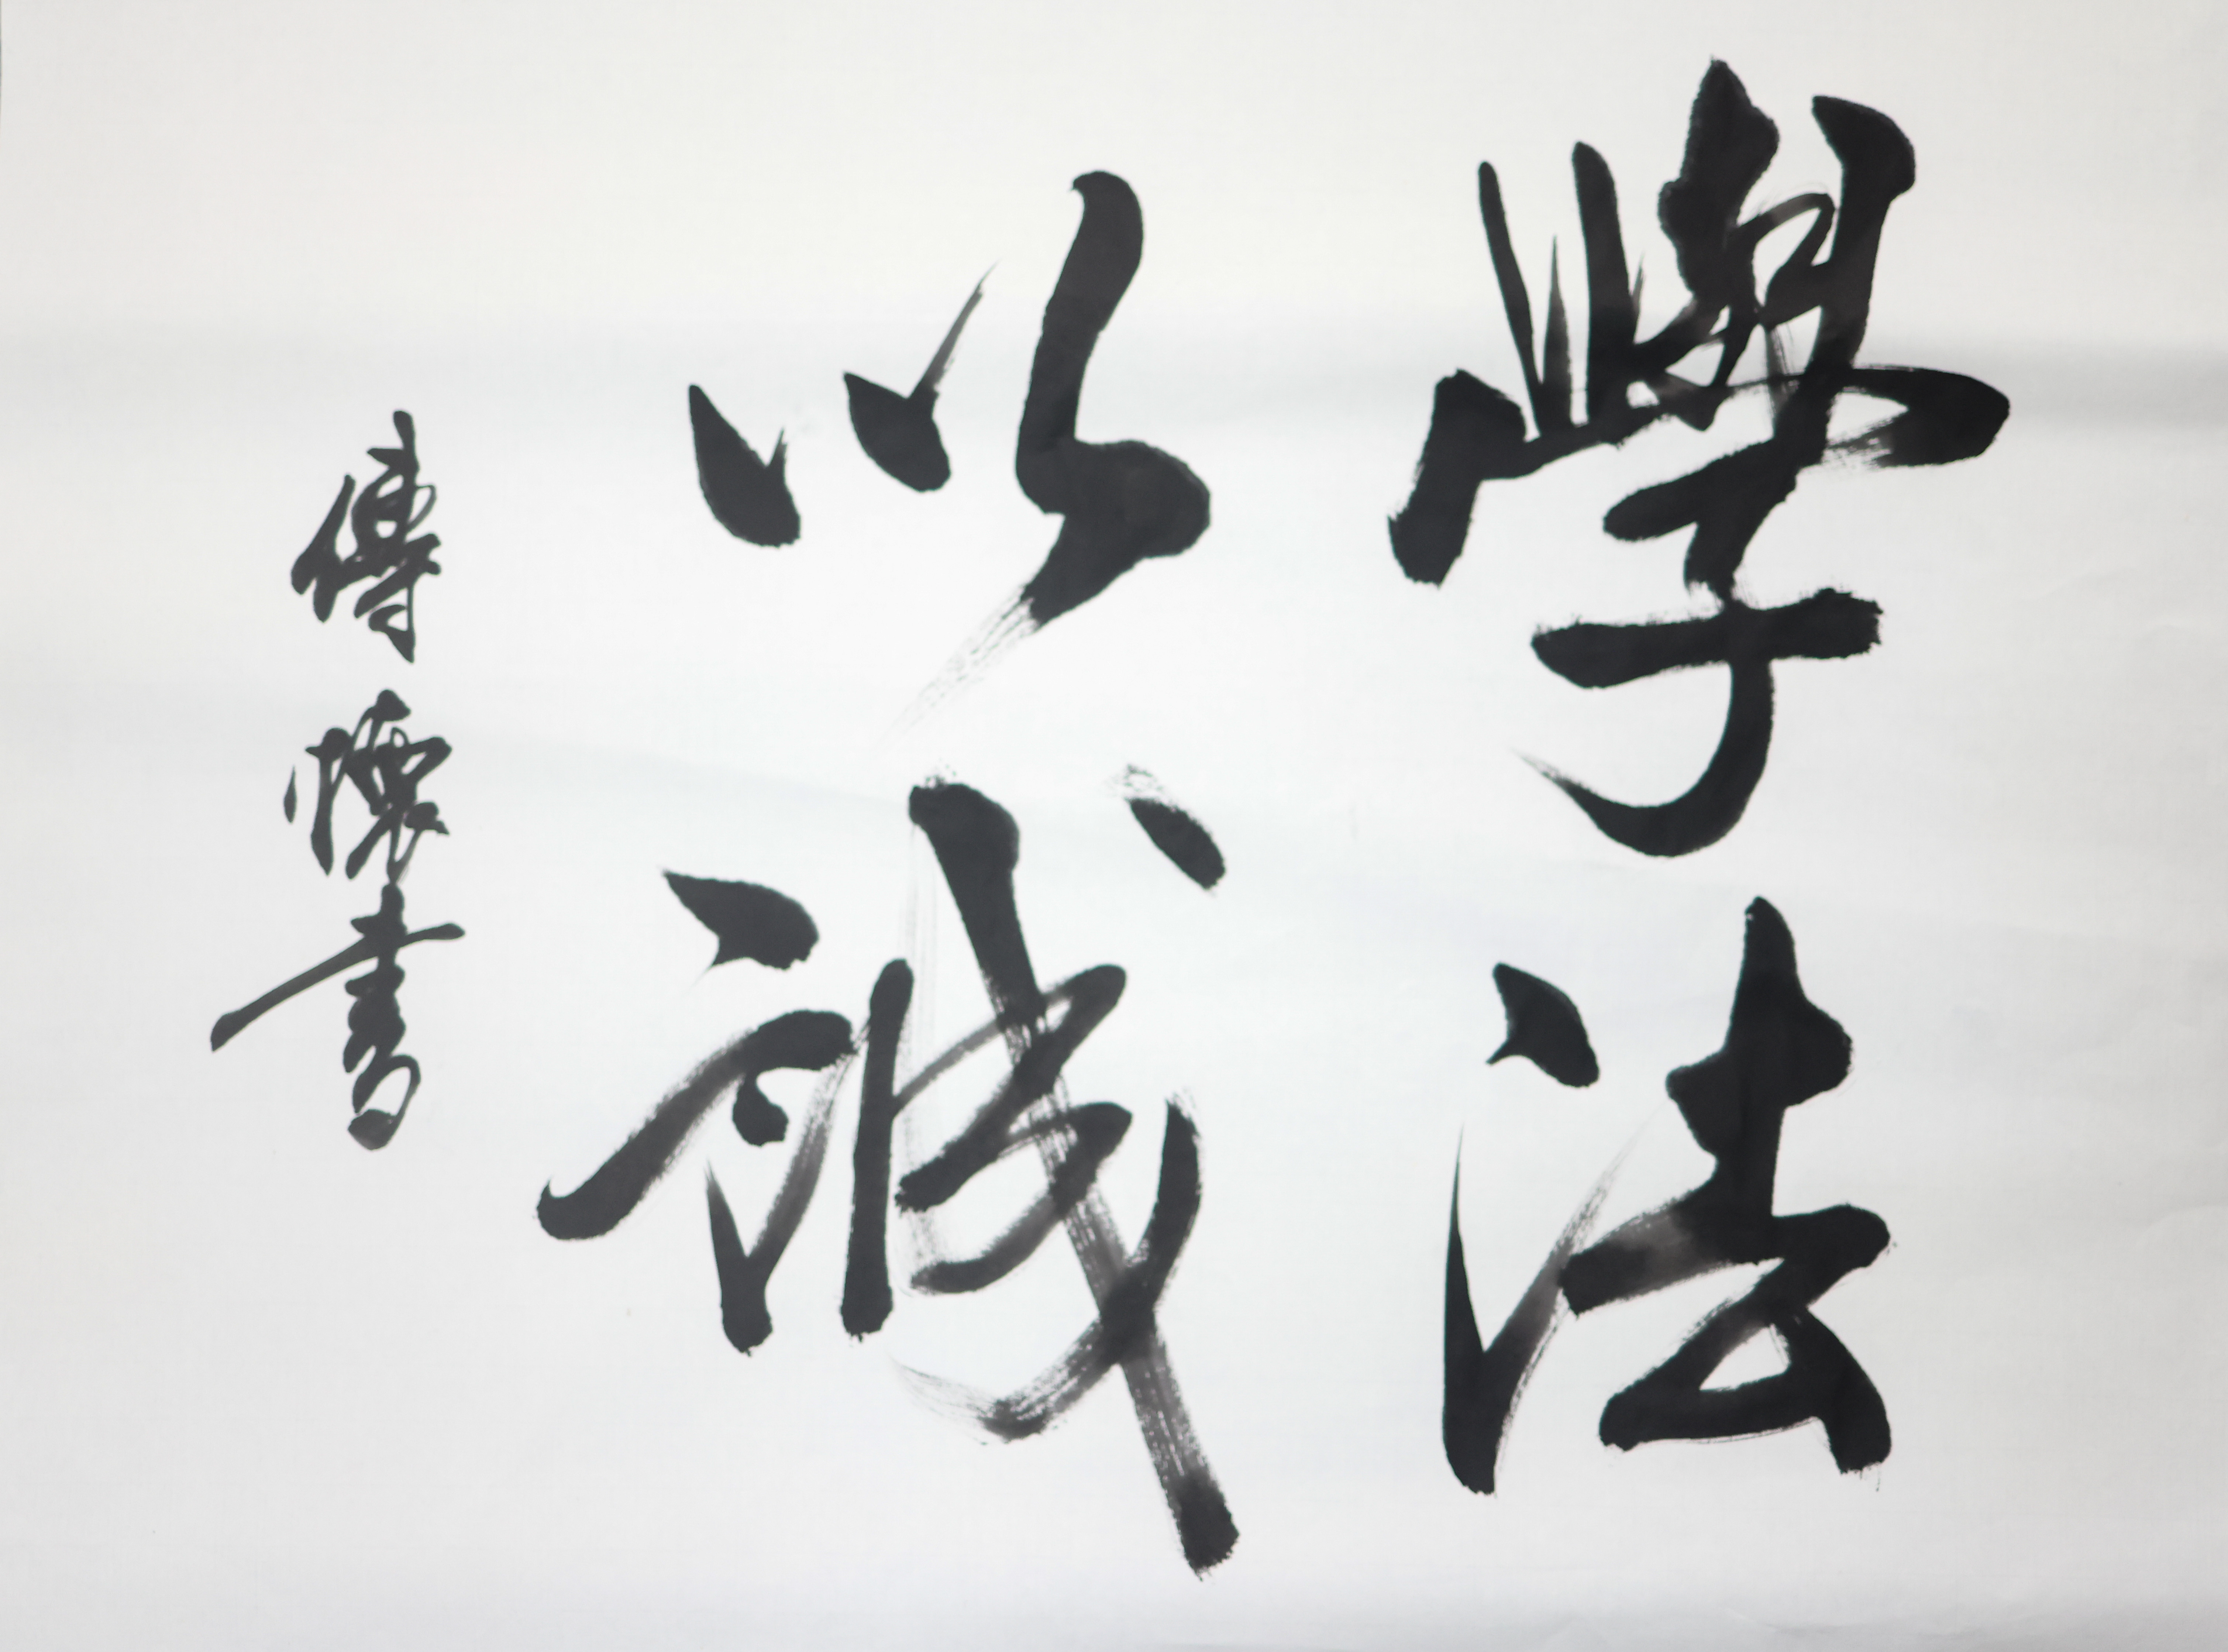 學法
以誠
傅懷書